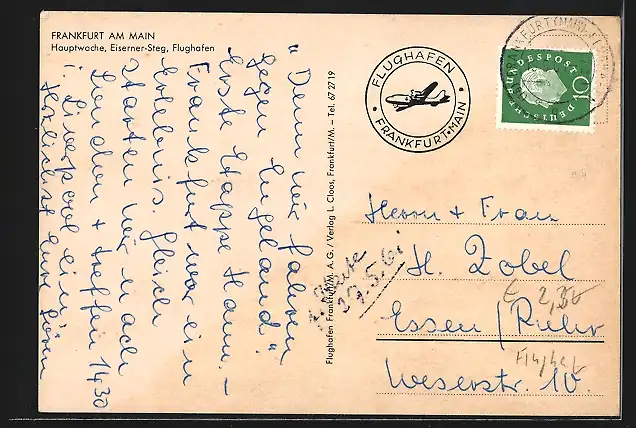 FRANKFURT AM MAIN
Hauptwache, Eiserner-Steg, Flughafen
"Denn wir fahren
gegen Engeland."
Erste Etappe Hann. –
Frankfurt war ein
Erlebnis, gleich
starten wir nach
London + treffen 14.30
i. Liverpool ein.
Herzlichst Eure
Flughafen Frankfurt/M. A.G. / Verlag L. Cloos, Frankfurt/M. – Tel. 67 27 19
FLUGHAFEN
FRANKFURT·MAIN
DEUTSCHE BUNDESPOST
10
FRANKFURT (MAIN)
Herrn + Frau
H. Zobel
Essen / Ruhr
Weserstr. 10.
27.5.61
€ 2,50
Flughaf